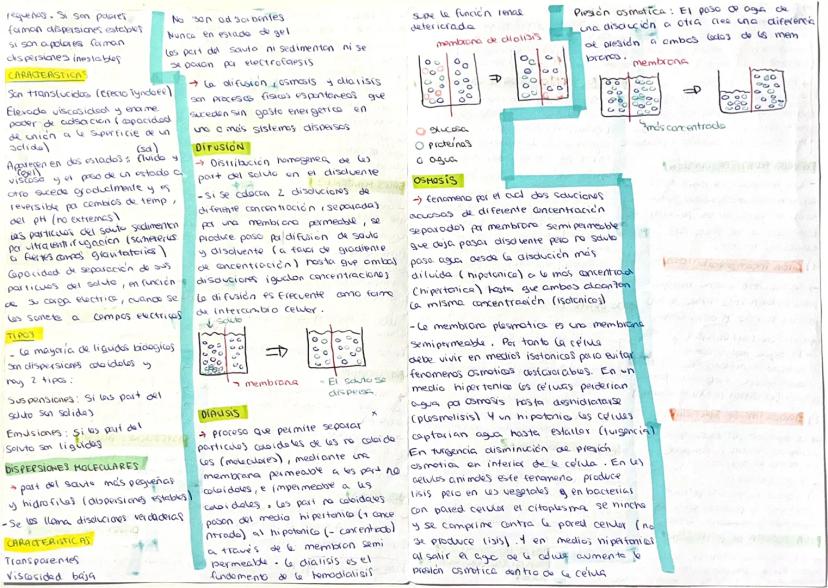 pequeñas. Si son polares
forman dispersiones estables
si son apolares forman
dispersiones inestables
CARACTERÍSTICAS
Son translúcidas (Efecto Tyndall)
Elevada viscosidad y enorme
poder de adsorción (capacidad
de unión a la superficie de un
sólido)
(sol)
Aparecen en dos estados: fluido y
(gel)
viscoso y el paso de un estado a
otro sucede gradualmente y es
reversible por cambios de temp,
del pH (no extremos)
Las partículas del soluto sedimentan
por ultracentrifugación (someterlos
a fuertes campos gravitatorios)
Capacidad de separación de sus
partículas del soluto, en función
de su carga eléctrica, cuando se
los somete a campos eléctricos
TIPOS
- La mayoría de líquidos biológicos
son dispersiones coloidales y
hay 2 tipos:
Suspensiones: Si las part del
soluto son sólidas
Emulsiones: Si las part del
soluto son líquidas
DISPERSIONES MOLECULARES
→ part del soluto más pequeñas
y hidrófilas (dispersiones estables)
- Se las llama disoluciones verdaderas
CARACTERÍSTICAS
Transparentes
Viscosidad baja
No son adsorbentes
Nunca en estado de gel
Las part del soluto ni sedimentan ni se
separan por electroforesis
→ La difusión, osmosis y diálisis
son procesos físicos espontáneos que
suceden sin gasto energético en
uno o más sistemas dispersos
DIFUSIÓN
→ Distribución homogénea de las
part del soluto en el disolvente
- Si se colocan 2 disoluciones de
diferente concentración, separadas
por una membrana permeable, se
produce paso por difusión de soluto
y disolvente (a favor de gradiente
de concentración) hasta que ambas
disoluciones igualen concentraciones
La difusión es frecuente como forma
de intercambio celular.
soluto
membrana
- El soluto se
dispersa
DIÁLISIS
→ proceso que permite separar
partículas coloidales de las no coloida
les (moleculares), mediante una
membrana permeable a las part no
coloidales, e impermeable a las
coloidales. Las part no coloidales
pasan del medio hipertónico (+ conce
ntrado) al hipotónico (- concentrado)
a través de la membran semi
permeable. La diálisis es el
fundamento de la hemodiálisis
suple la función renal
deteriorada
membrana de diálisis
glucosa
proteínas
agua
OSMOSIS
→ fenómeno por el cual dos soluciones
acuosas de diferente concentración
separadas por membrana semipermeable
que deja pasar disolvente pero no soluto
pasa agua desde la disolución más
diluida (hipotónica) a la más concentrada
(hipertónica) hasta que ambas alcanzan
la misma concentración (isotónicas)
- La membrana plasmática es una membrana
semipermeable. Por tanto la célula
debe vivir en medios isotónicos para evitar
fenómenos osmóticos desfavorables. En un
medio hipertónico las células perderían
agua por osmosis hasta deshidratarse
(plasmólisis) Y un hipotónico las células
captarían agua hasta estallar (turgencia)
En turgencia disminución de presión
osmótica en interior de la célula. En las
células animales este fenómeno produce
lisis pero en las vegetales y en bacterias
con pared celular el citoplasma se hincha
y se comprime contra la pared celular (no
se produce lisis). Y en medios hipertónicos
al salir el agc de la célula aumenta la
presión osmótica dentro de la célula
Presión osmótica: El paso de agua de
una disolución a otra crea una diferencia
de presión a ambos lados de las mem
branas.
membrana
más concentrado